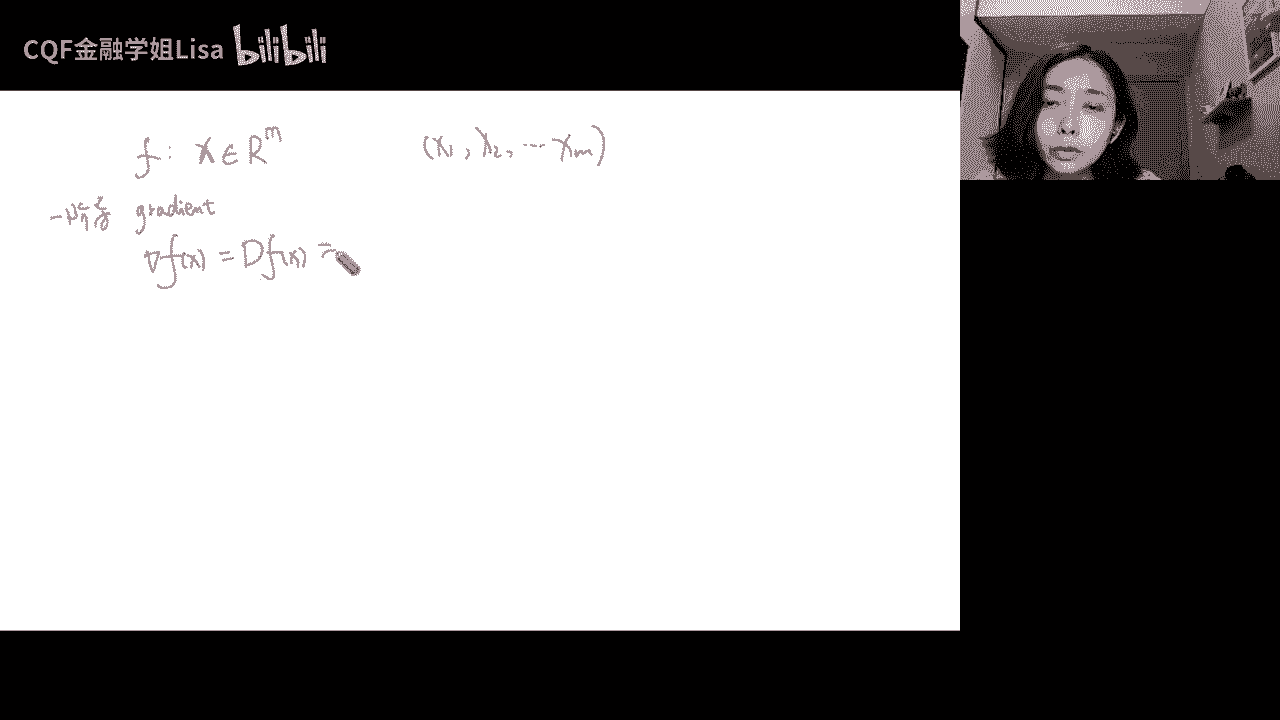 CQF金融学姐Lisa bilibili
f: x ∈ R^m (x₁, x₂, ⋯ xₘ)
一阶导 gradient
∇f(x) = Df(x) =